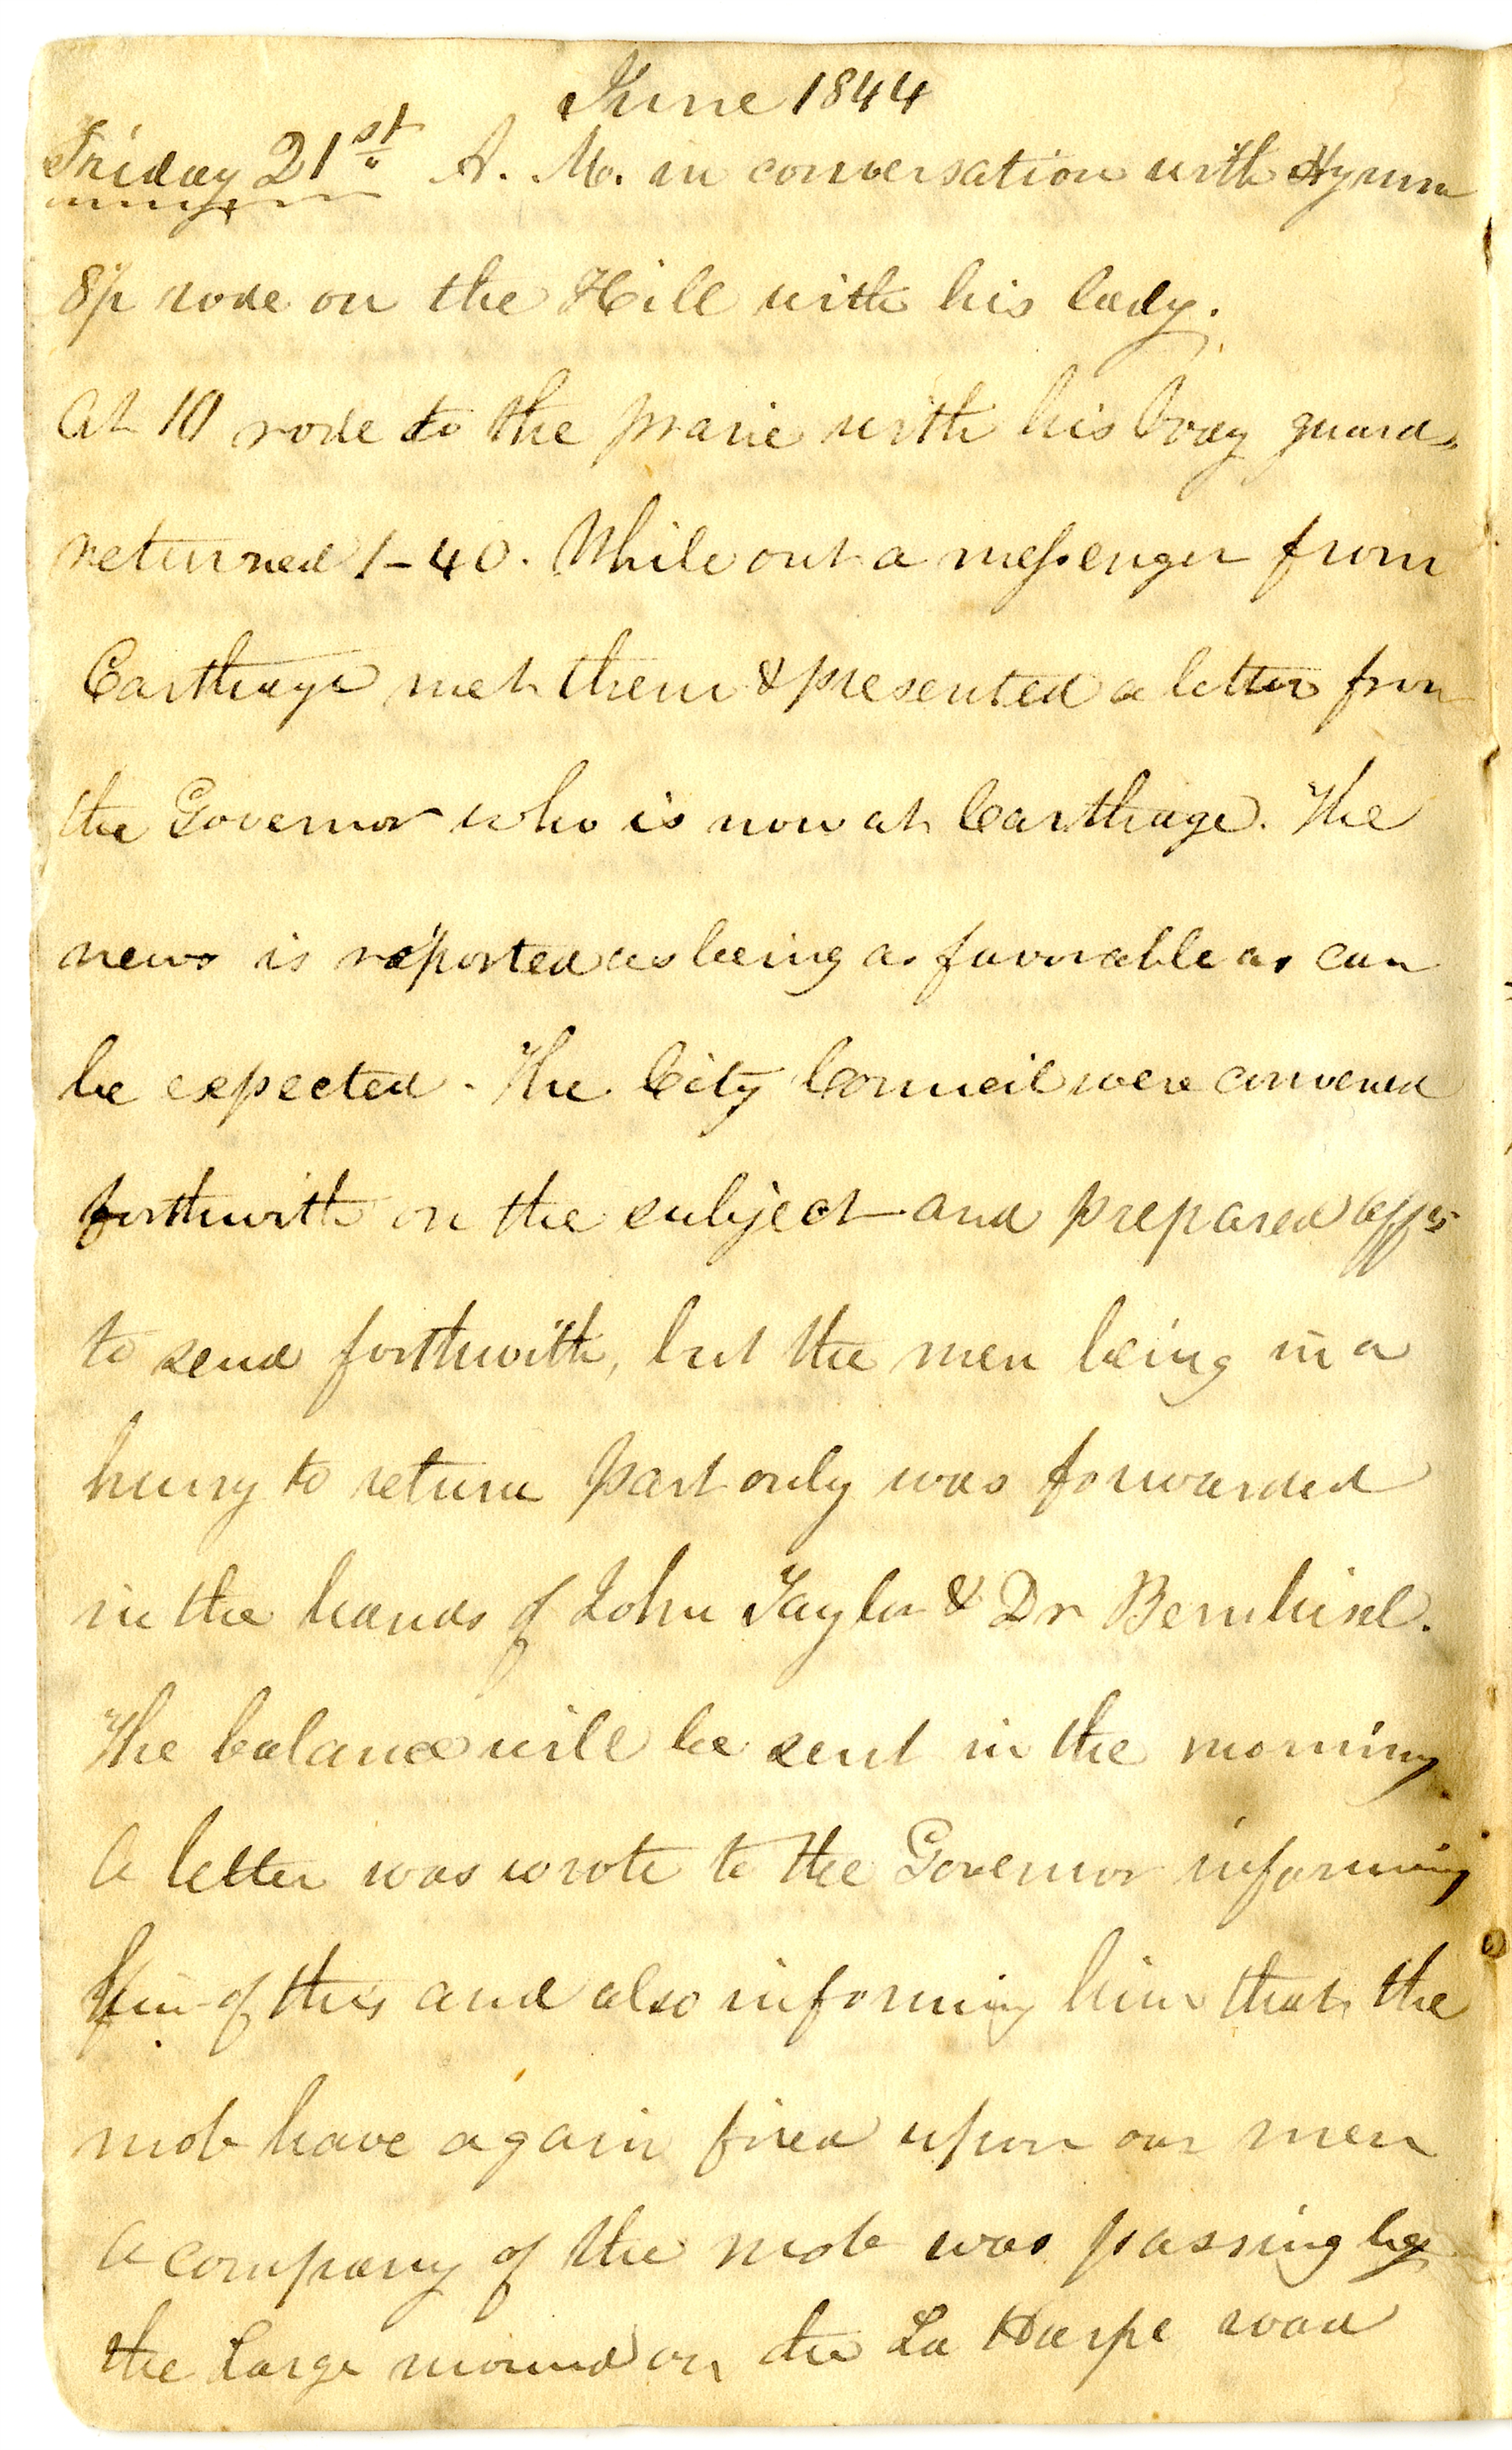 June 1844
Friday 21st A. M. in conversation with Hyrum
8½ rode on the Hill with his lady.
At 10 rode to the prarie with his body guard,
returned 1-40. While out a messenger from
Carthage met them & presented a letter from
the Governor who is now at Carthage. The
news is reported as being as favorable as can
be expected. The City Council were convened
forthwith on the subject and prepared affts
to send forthwith, but the men being in a
hurry to return part only was forwarded
in the hands of John Taylor & Dr Bernhisel.
The balance will be sent in the morning
A letter was wrote to the Governor informing
him of this and also informing him that the
mob have again fired upon our men
A company of the mob was passing by
the large mound on the La Harpe road